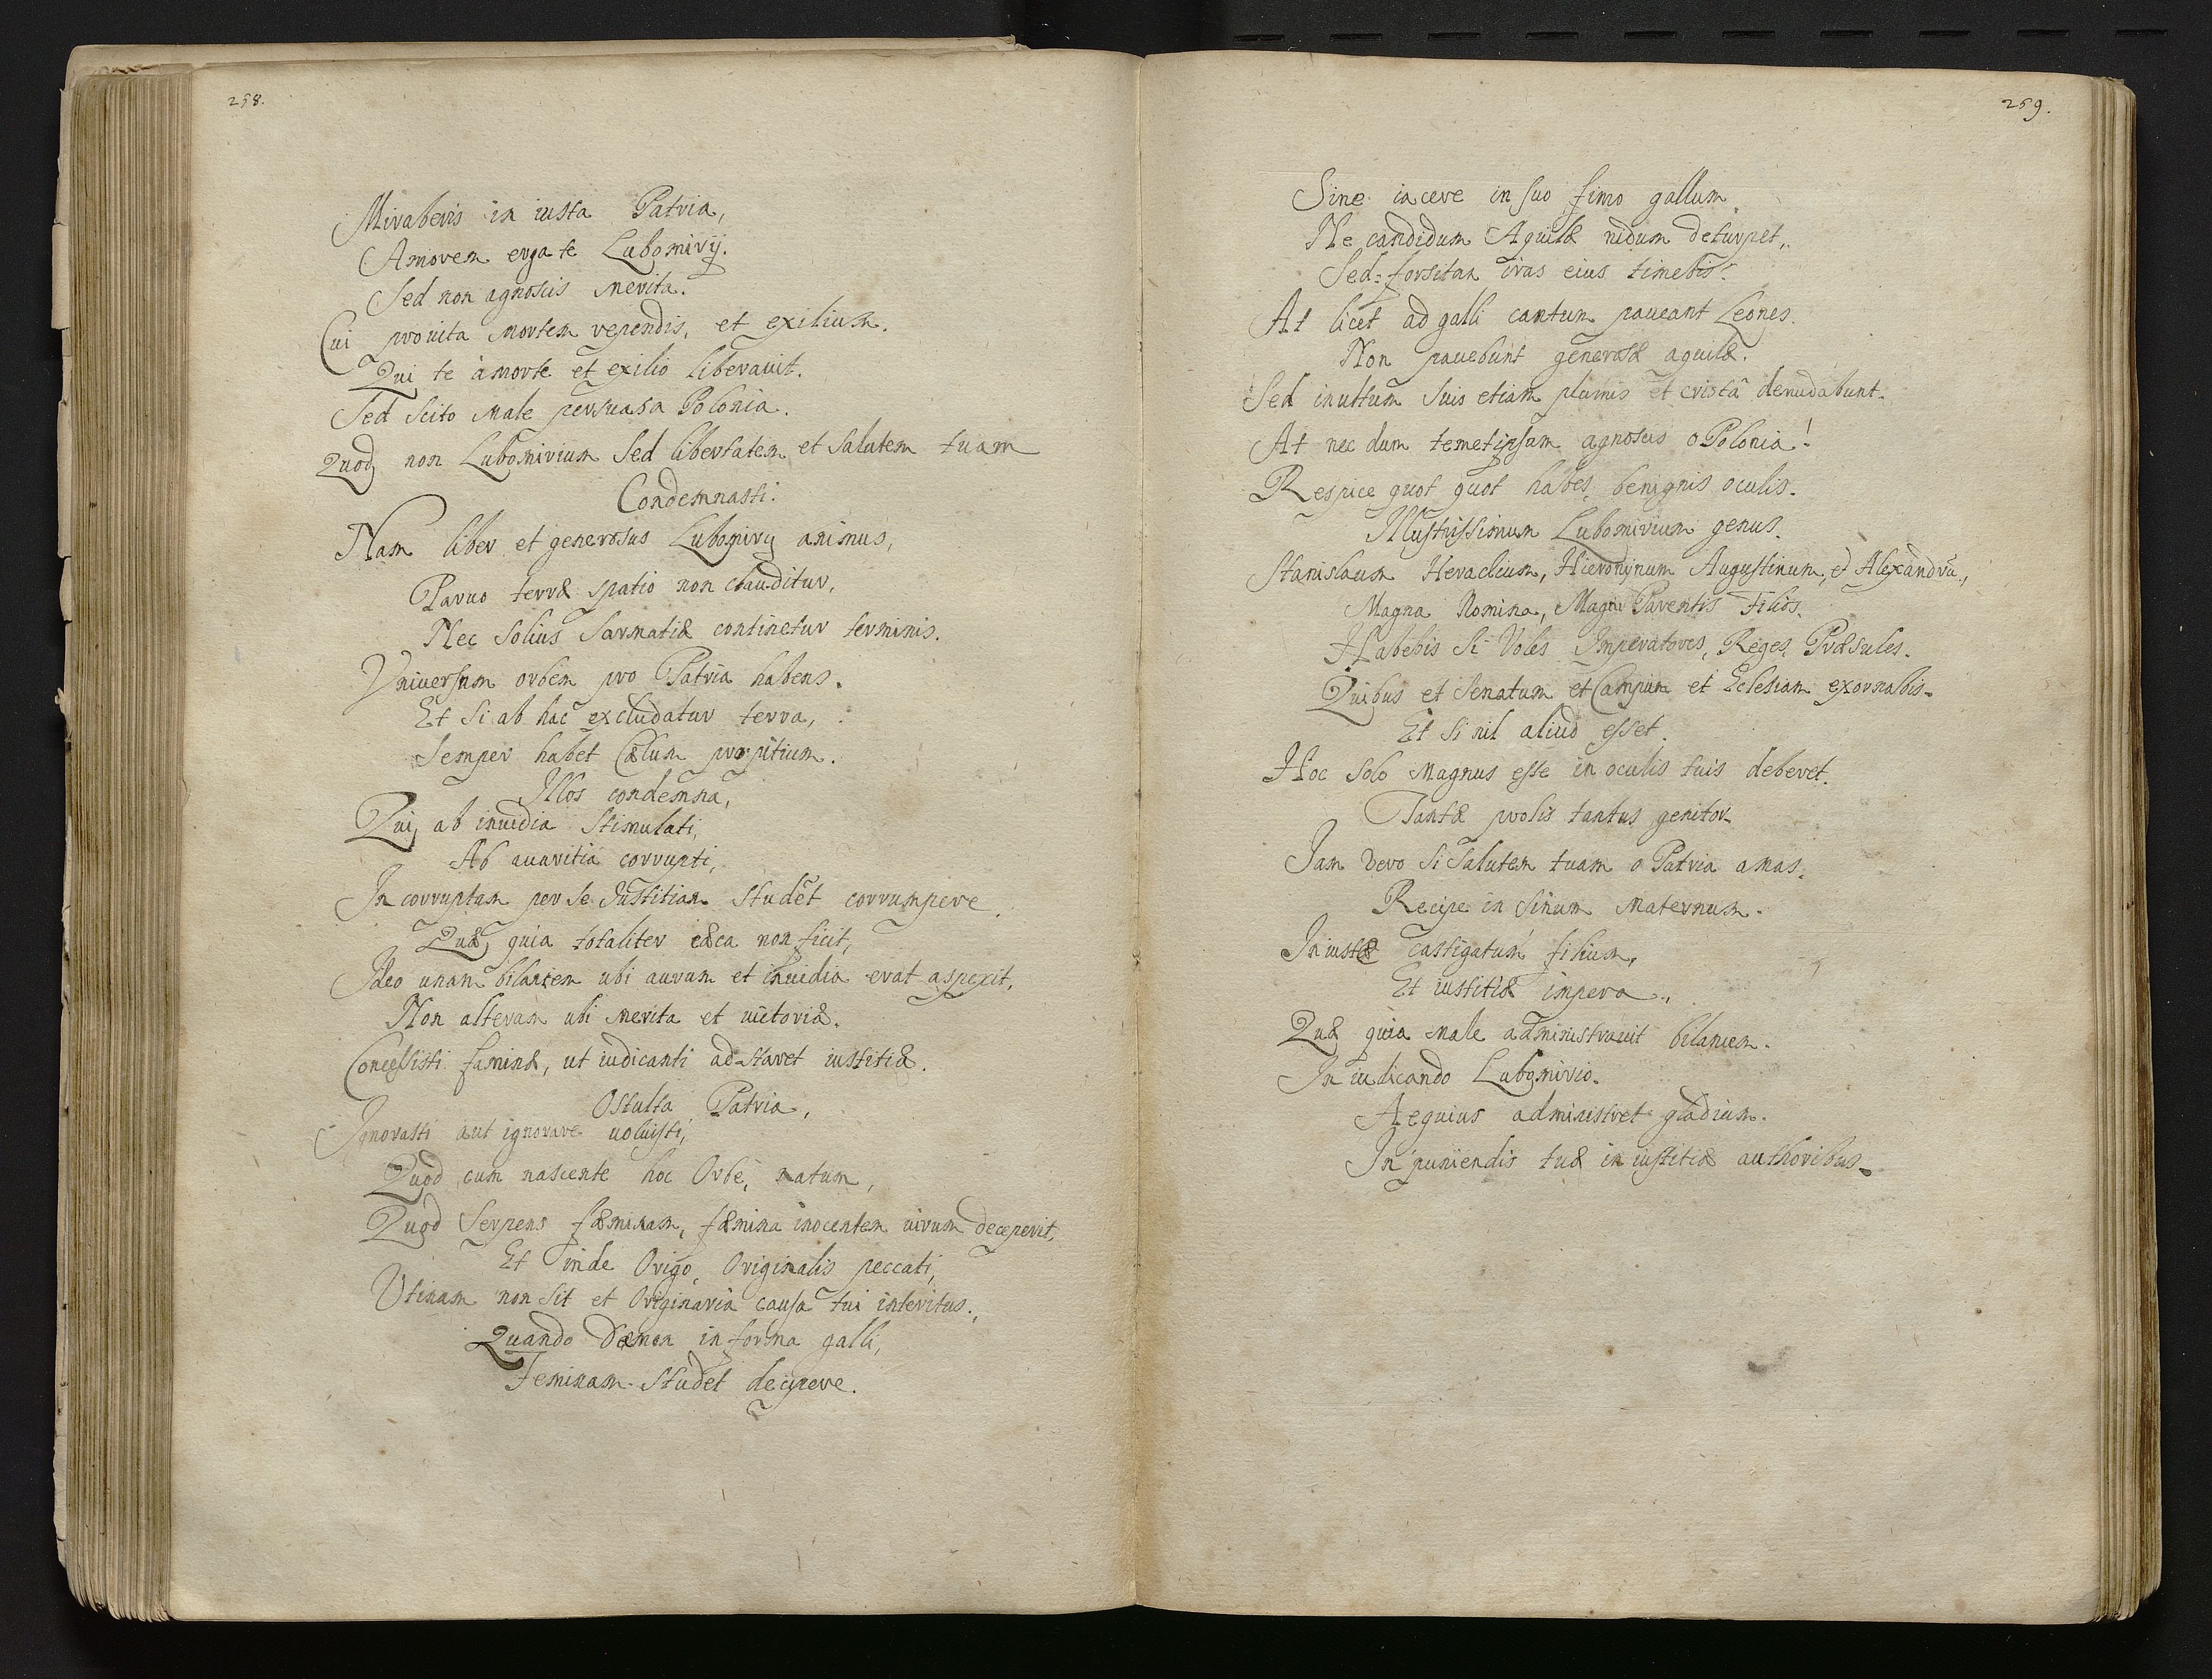 258.
Miraberis in iusta Patria,
Amorem erga te Lubomirij.
Sed non agnoscis merita.
Cui pro uita mortem rependis, et exilium.
Qui te à morte et exilio liberauit.
Sed scito male persuasa Polonia.
Quod non Lubomirium sed libertatem et salutem tuam
Condemnasti.
Nam liber et generosus Lubomirij animus,
Paruo terræ spatio non clauditur,
Nec solius Sarmatiæ continetur terminis.
Vniuersum orbem pro Patria habens.
Et si ab hac excludatur terra,
Semper habet Cælum propitium.
Illos condemna,
Qui ab inuidia stimulati,
Ab auaritia corrupti,
In corruptam per se Justitiam studēt corrumpere.
Quæ, quia totaliter cæca non ficit,
Ideo unam bilancem ubi aurum et inuidia erat aspexit,
Non alteram ubi merita et uictoriæ.
Concessisti faminæ, ut iudicanti ad-staret iustitiæ.
O stulta Patria,
Ignorasti aut ignorare uoluisti,
Quod cum nascente hoc Orbe, natum,
Quod Serpens fæminam, fæmina inocentem uirum deceperit,
Et inde Origo, Originalis peccati,
Vtinam non sit et Originaria causa tui interitus.,
Quando Dæmon in forma galli,
Feminam studet decipere.
259.
Sine iacere in suo fimo gallum
Ne candidum Aquilæ nidum deturpet,.
Sed: forsitan iras eius timebis?
At licet ad galli cantum paueant Leones.
Non pauebunt generosæ aquilæ.
Sed inultum suis etiam plumis et cristâ denudabunt.
At nec dum temetipsam agnoscis o Polonia!
Respice quot quot habes, benignis oculis.
Illustrissimum Lubomirium genus.
Stanislaum Heraclium, Hieronÿnum Augustinum, et Alexandrū.,
Magna Nomina, Magni Parentis Filios.
Habebis si Voles Imperatores, Reges, Præsules.
Quibus et Senatum et Campum et Eclesiam exornabis.
Et si nil aliud esset.
Hoc solo Magnus esse in oculis tuis deberet.
Tantæ prolis tantus genitor.
Jam vero si salutem tuam o Patria amas.
Recipe in sinum Maternum.
In iustæ castigatum filium,
Et iustitiæ impera.,
Quæ quia male administrauit bilancem.
In iudicando Lubomirio.
Aequius administret gladium.
In puniendis tuæ in iustitiæ authoribus.